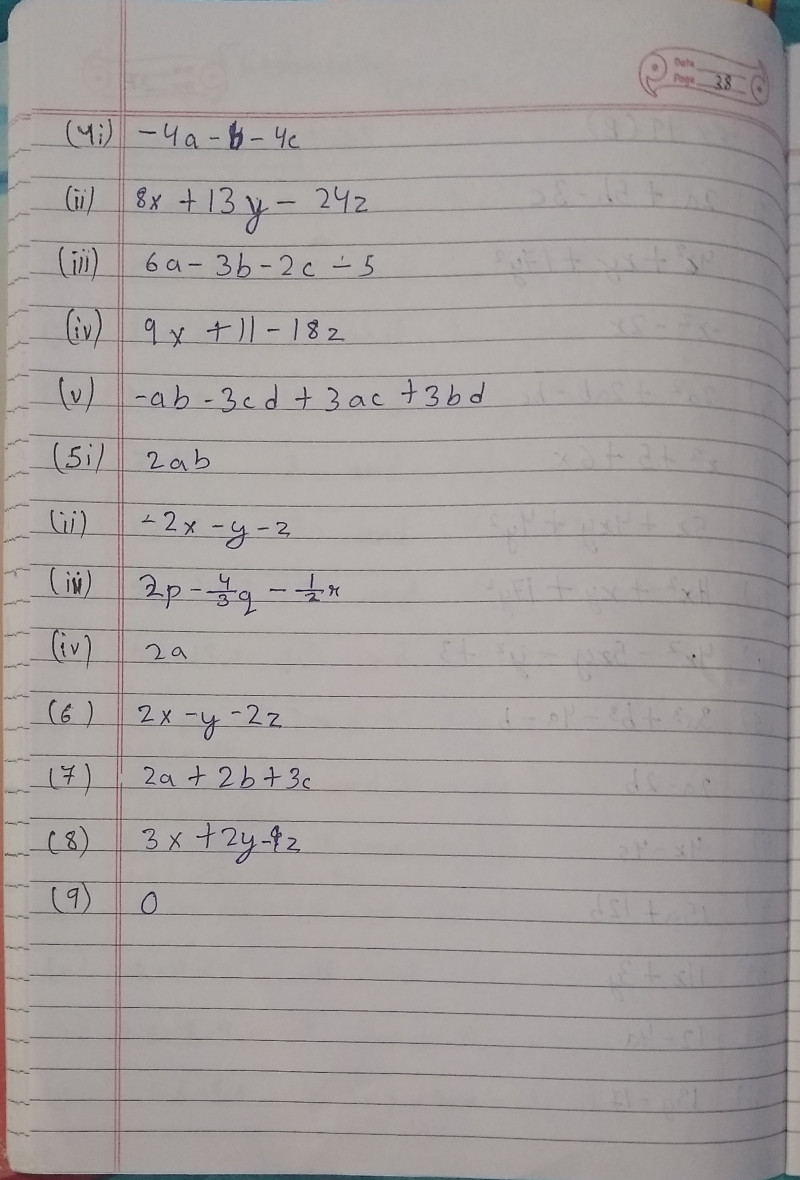 Date
Page 38
(4i) -4a - b - 4c
(ii) 8x + 13y - 24z
(iii) 6a - 3b - 2c - 5
(iv) 9x + 11 - 18z
(v) -ab - 3cd + 3ac + 3bd
(5i) 2ab
(ii) -2x - y - z
(iii) 2p - 4/3 q - 1/2 r
(iv) 2a
(6) 2x - y - 2z
(7) 2a + 2b + 3c
(8) 3x + 2y - z
(9) 0